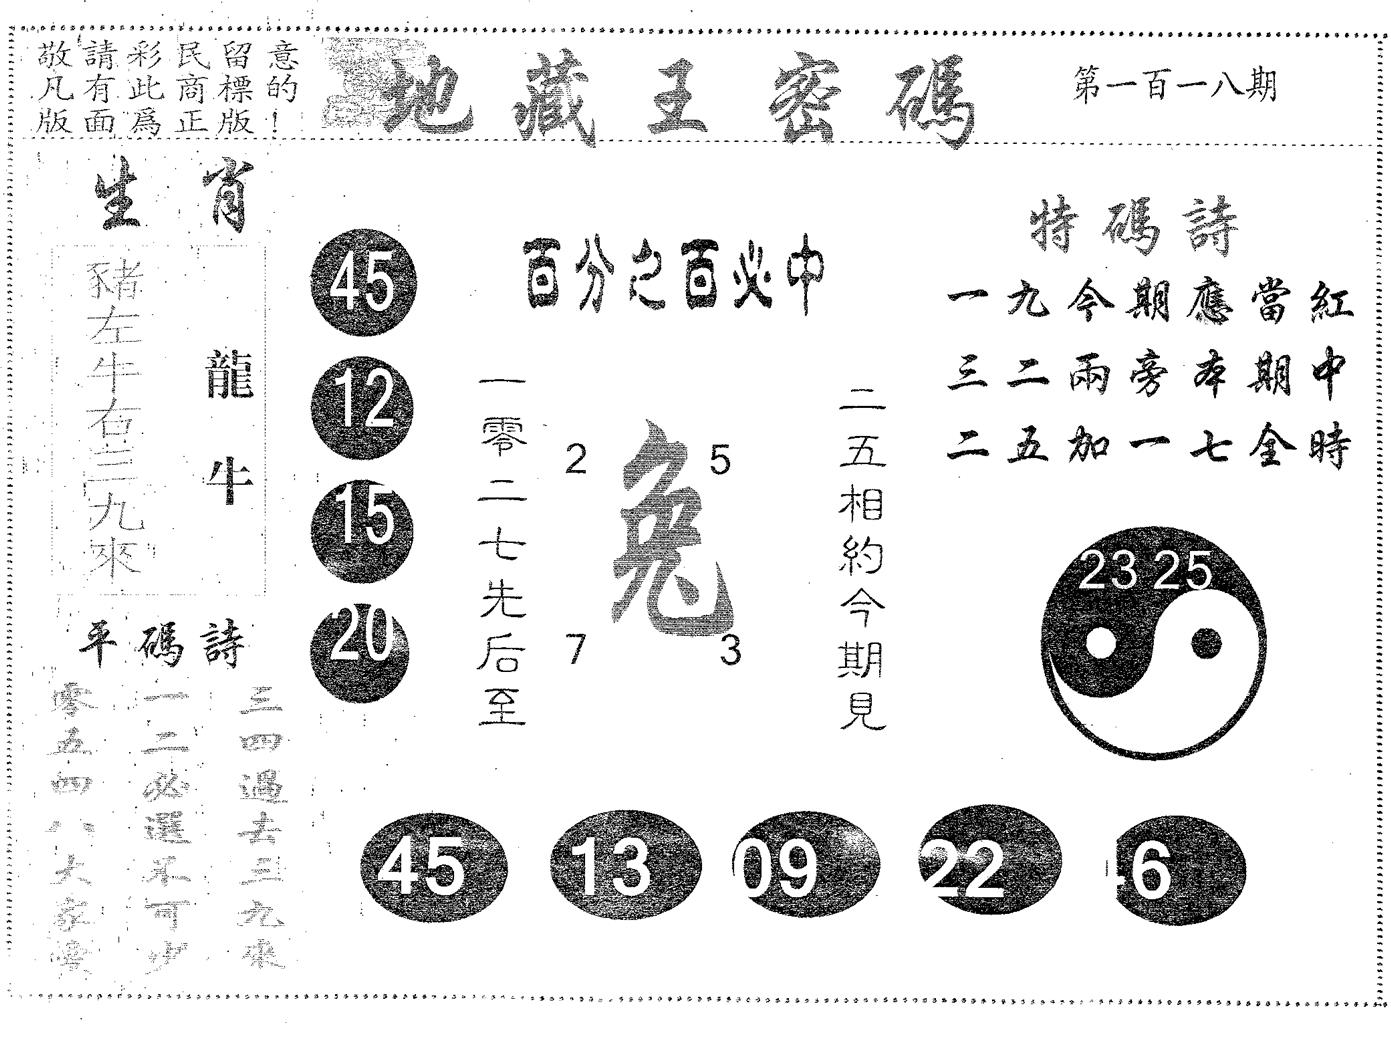 敬請彩民留意
凡有此商標的
版面爲正版！
地藏王密碼
第一百一八期
生肖
豬左牛右三九來
龍牛
平碼詩
零五四八大家要
一二必選不可少
三四過去三九來
45
12
15
20
百分之百必中
一零二七先后至
2 5
兔
7 3
二五相約今期見
特碼詩
一九今期應當紅
三二兩旁本期中
二五加一七全時
23 25
45 13 09 22 46